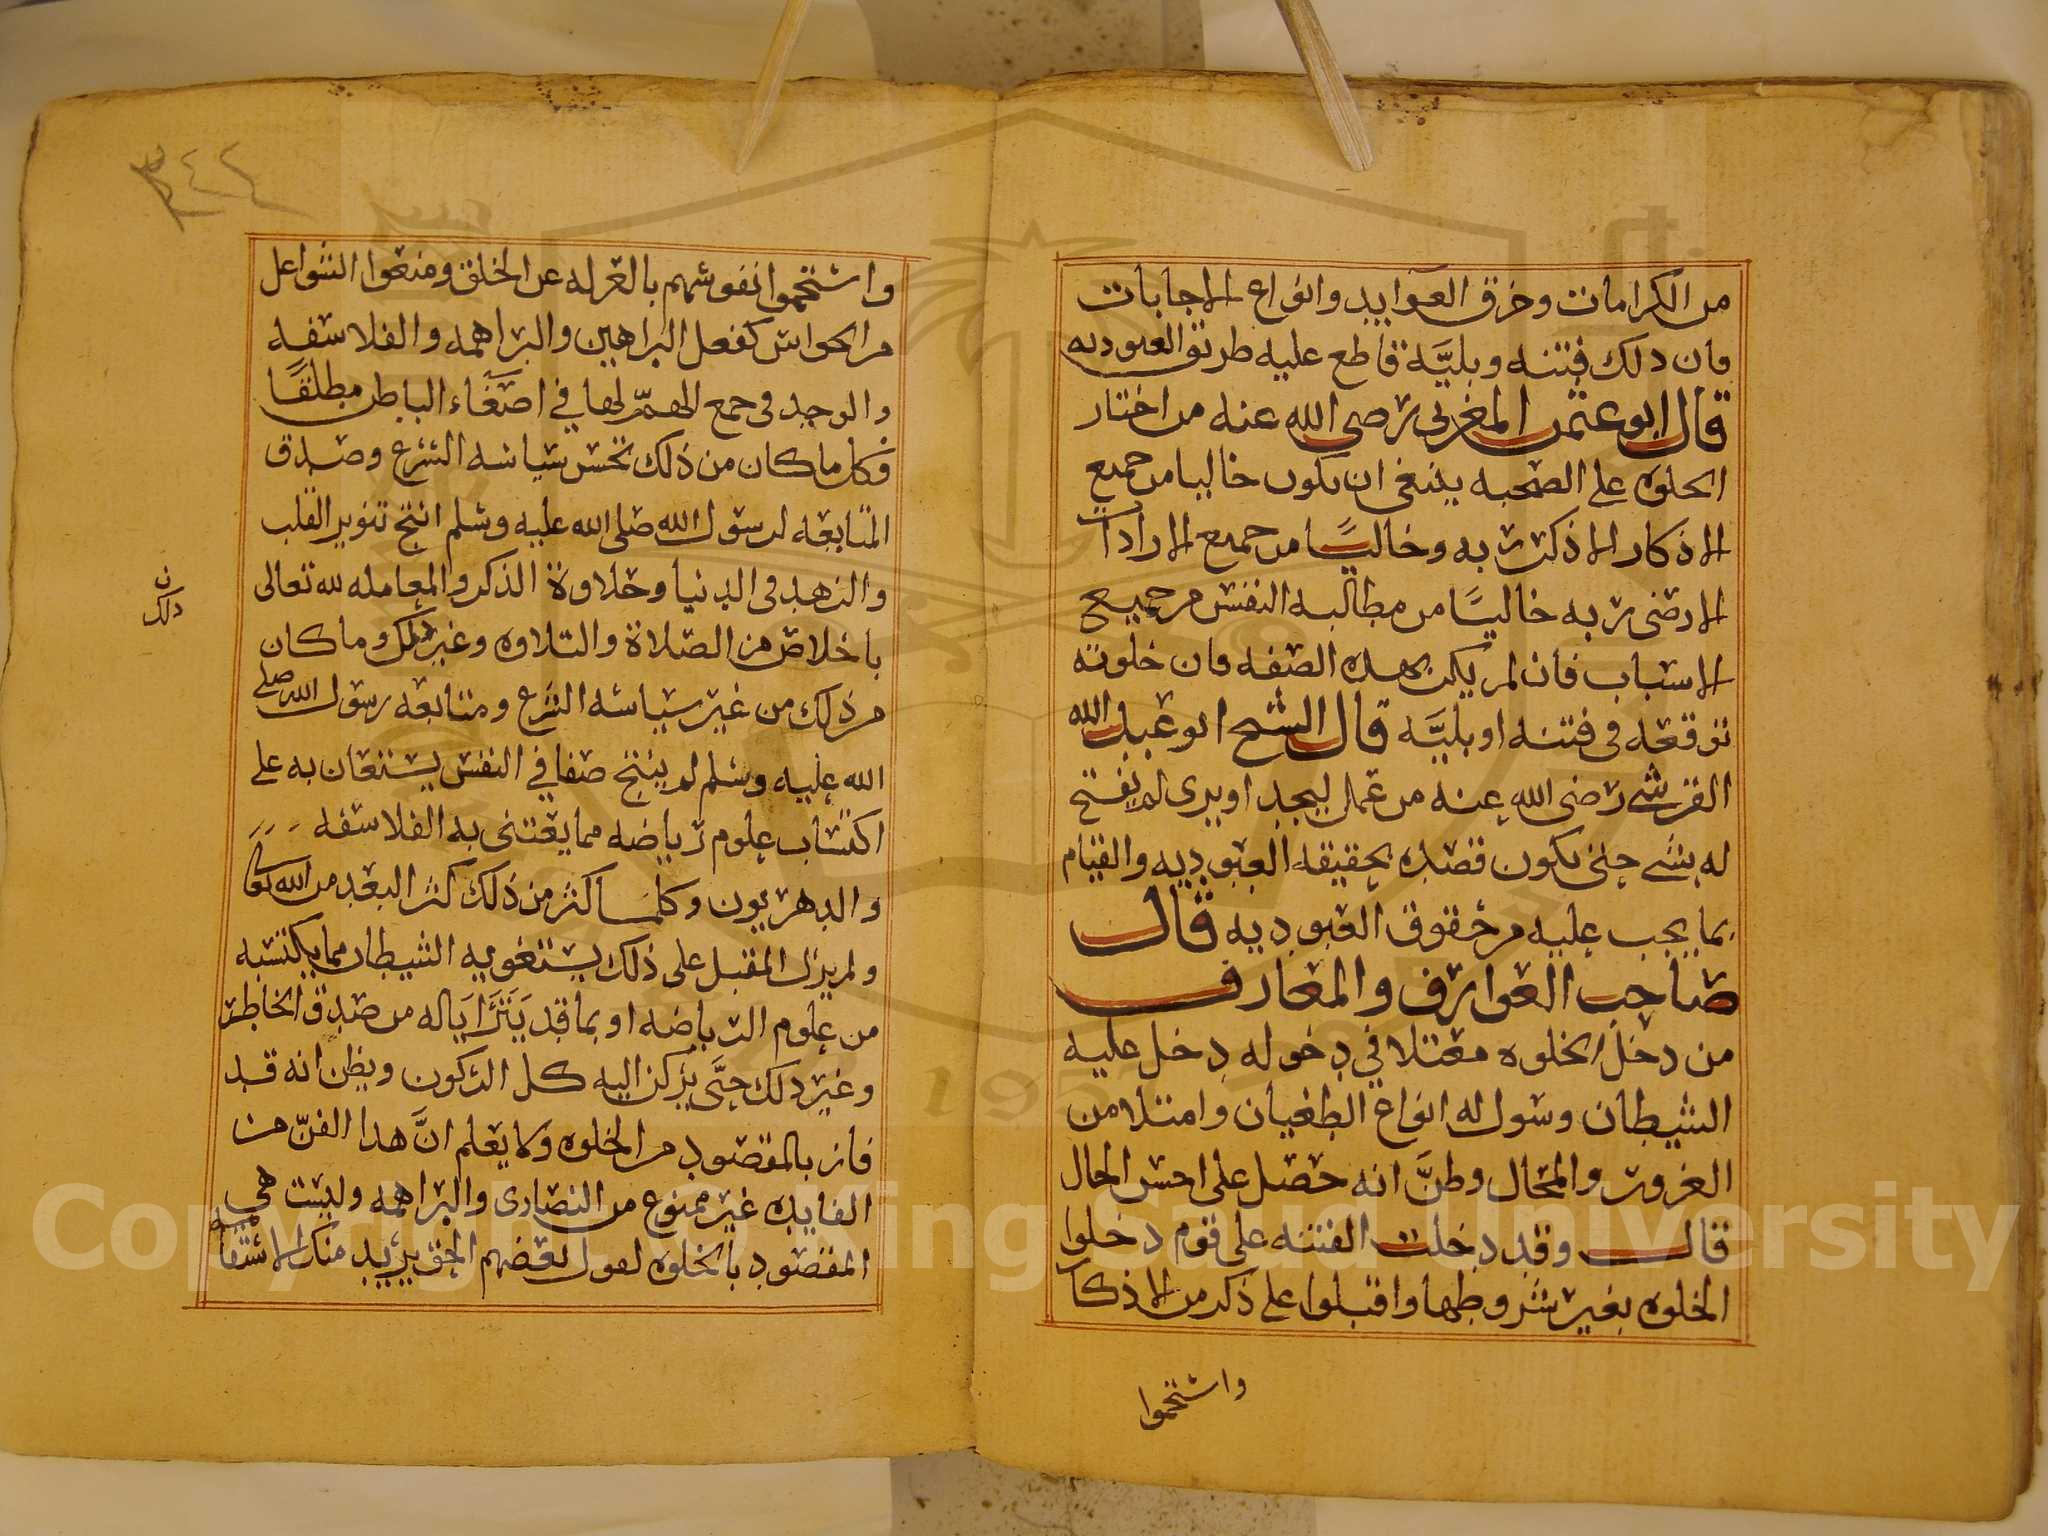 من الكرامات وخرق العوايد وانواع الاجابات
فان ذلك فتنه وبليَّه قاطع عليه طريق العبوديه
قال ابو عثمن المغربي رضى الله عنه من اختار
الخلوه على الصحبه ينبغى ان يكون خاليا من جميع
الاذكار الا ذكر ربه وخاليًا من جميع الارادات
الا رضى ربه خاليًا من مطالبه النفس من جميع
الاسباب فان لم يكن بهذه الصفه فان خلوته
توقعه فى فتنه او بليَّه قال الشيخ ابو عبد الله
القرشى رضى الله عنه من عمل ليجد او يرى لم يفتح
له بشى حتى يكون قصده بحقيقه العبوديه والقيام
بما يجب عليه من حقوق العبوديه قال
صاحب العوارف والمعارف
من دخل الخلوه معتلا في دخوله دخل عليه
الشيطان وسول له انواع الطغيان وامتلا من
الغرور والمحال وظنَّ انه حصل على احسن الحال
قال وقد دخلت الفتنه على قوم دخلوا
الخلوه بغير شروطها واقبلوا على ذكر من الاذكار
واستحموا
٣٤٤
واستحموا نفوسهم بالعزله عن الخلق ومنعوا الشواغل
من الحواس كفعل الراهبين والبراهمه والفلاسفه
والوحد فى جمع الهمّ لها في اصغاء الباطن مطلقًا
فكل ما كان من ذلك بحسن سياسه الشرع وصدق
المتابعه لرسول الله صلى الله عليه وسلم انتج تنوير القلب
والزهد فى الدنيا وحلاوة الذكر والمعامله لله تعالى
باخلاص من الصلاة والتلاوه وغير ذلك وما كان
من ذلك من غير سياسه الشرع ومتابعه رسول الله صلى
الله عليه وسلم لم ينتج صفا في النفس يستعان به على
اكتساب علوم رياضه مما يعتنى به الفلاسفه
والدهريون وكلما كثر من ذلك كثر البعد من الله تعالى
ولم يزل المقبل على ذلك يستغويه الشيطان مما يكتسبه
من علوم الرياضه او بما قد يَتَرَاياله من صدق الخاطر
وغير ذلك حتَّى يركن اليه كل الركون ويظن انه قد
فاز بالمقصود من الخلوه ولا يعلم انَّ هذا الفنّ من
الفايده غير ممنوع من النصارى والبراهمه وليست هى
المقصود بالخلوه لقول بعضهم الحق يريد منك الاستقامه
ن
ذلك